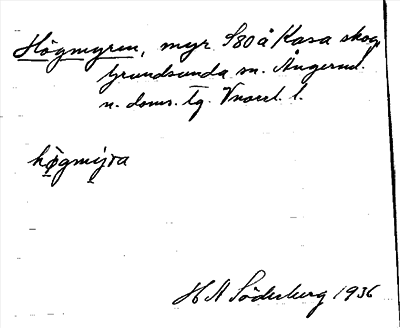 Högmyren, myr S80å Kasa skog,
Grundsunda sn. Ångerml.
n. doms. Tg. Vnorrl. l.
högmyra
H A Söderberg 1936